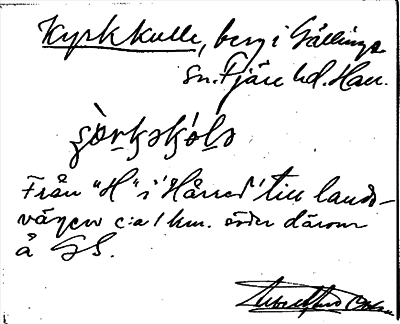 Kyrkkulle, berg i Gällinge
sn. Fjäre hd. Hall.
Från "H" i 'Hårred' till lands-
vägen c:a 1 km. söder därom
å GS.